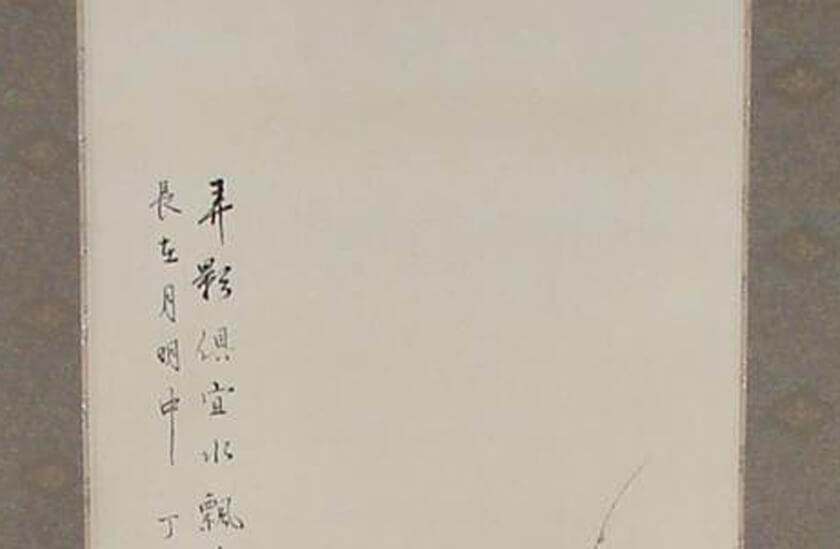 弄影俱宜水飄
長在月明中 丁